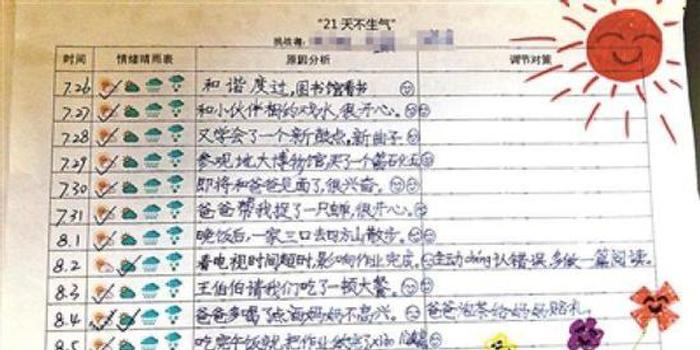 "21天不生气"
挑战者：
时间 情绪晴雨表 原因分析 调节对策
7.26 和谐度过，图书馆看书
7.27 和小伙伴相约戏水，很开心。
7.28 又学会了一个新甜点，新曲子
7.29 参观地大博物馆买了一个
7.30 即将和爸爸见面了，很兴奋。
7.31 爸爸帮我捉了一只蝉，很开心。
8.1 晚饭后，一家三口去四方山散步。
8.2 看电视时间超时，影响作业完成。主动chéng认错误，多做一篇阅读。
8.3 王伯伯请我们吃了一顿大餐。
8.4 爸爸多喝了点酒妈妈不高兴。 爸爸泡茶给妈妈赔礼。
8.5 吃完午饭就把作业